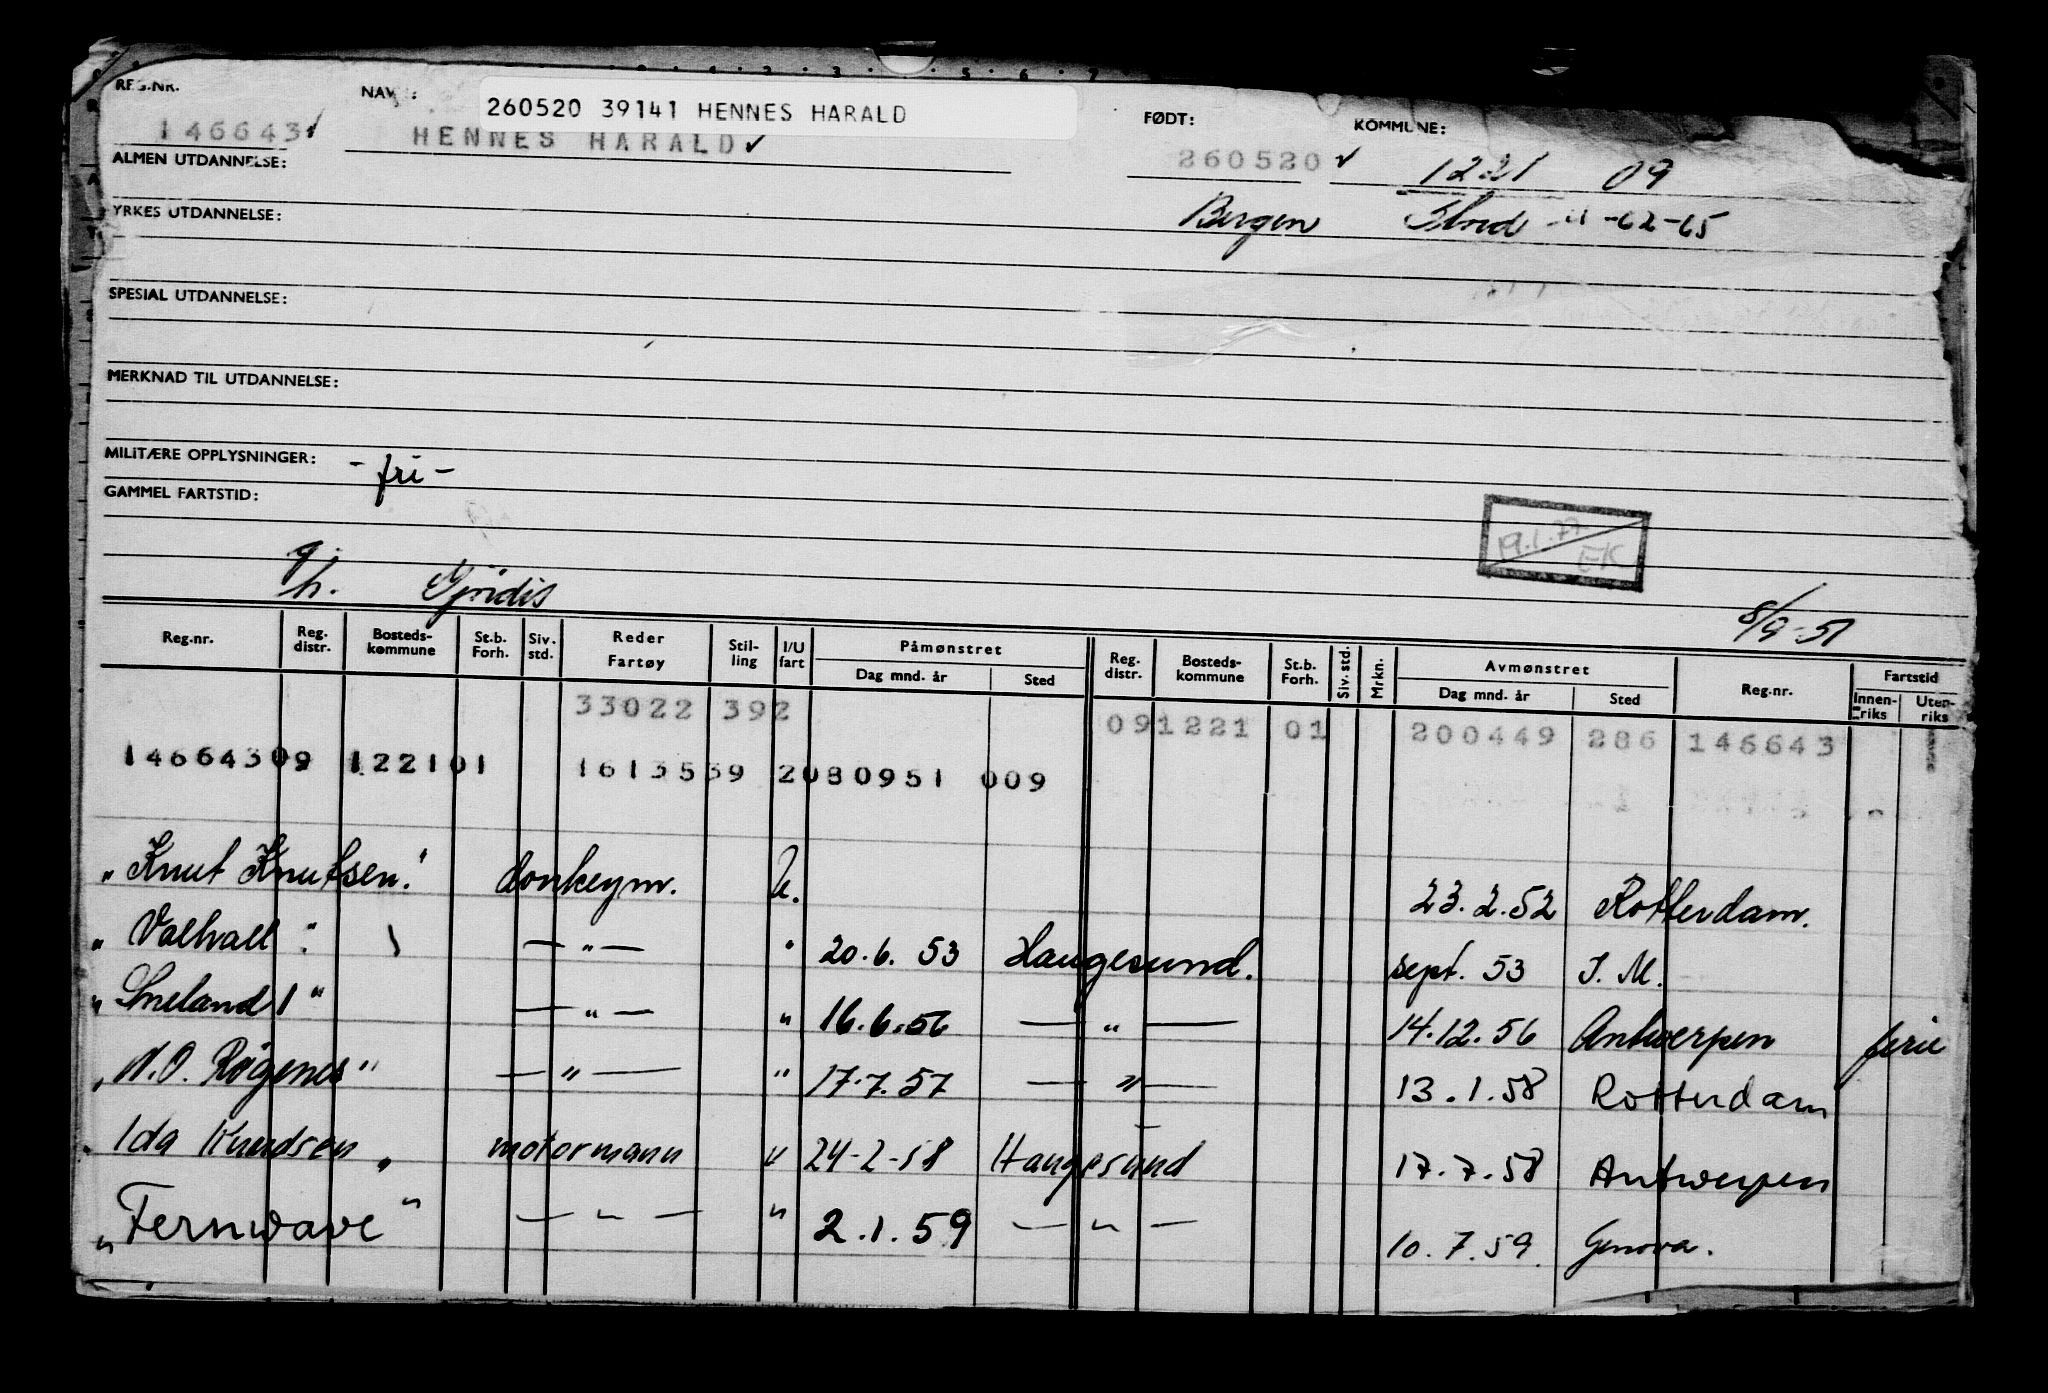 260520 39141 HENNES HARALD
REG.NR. NAVN: FØDT: KOMMUNE:
146643 HENNES HARALD 260520 1221 09
ALMEN UTDANNELSE:
Bergen Stord -62-65
YRKES UTDANNELSE:
SPESIAL UTDANNELSE:
MERKNAD TIL UTDANNELSE:
MILITÆRE OPPLYSNINGER: - fri -
GAMMEL FARTSTID:
19.1.77
EK
g/h. 8/9-51
Reg.nr. Reg. distr. Bosteds-kommune St.b. Forh. Siv. std. Reder Fartøy Stil-ling I/U fart Påmønstret Dag mnd. år Sted Reg. distr. Bosteds-kommune St.b. Forh. Siv. std. Mrkn. Avmønstret Dag mnd. år Sted Reg.nr. Fartstid Innen-riks Uten-riks
33022 392 091221 01 200449 286 146643
14664309 122101 1613539 2080951 009
"Knut Knutsen." donkeym. U. 23.2.52 Rotterdam.
"Valhall" — " — " 20.6.53 Haugesund. sept. 53 I.M.
"Sneland 1" — " — " 16.6.56 — " — 14.12.56 Antwerpen ferie
"N.O. Røgenes" — " — " 17.7.57 — " — 13.1.58 Rotterdam
"Ida Knudsen" motormann " 24-2-58 Haugesund 17.7.58 Antwerpen
"Fernwave" — " — " 2.1.59 — " — 10.7.59. Genova.